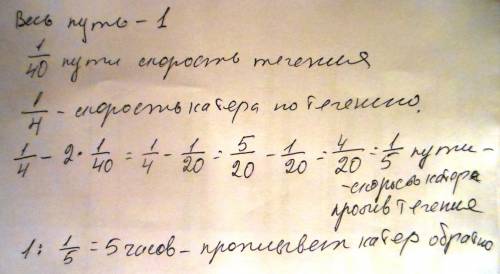 Весь путь - 1
1/40 пути скорость течения
1/4 - скорость катера по течению.
1/4 - 2 · 1/40 = 1/4 - 1/20 = 5/20 - 1/20 = 4/20 = 1/5 пути -
- скорость катера
против течения
1 : 1/5 = 5 часов - проплывет катер обратно